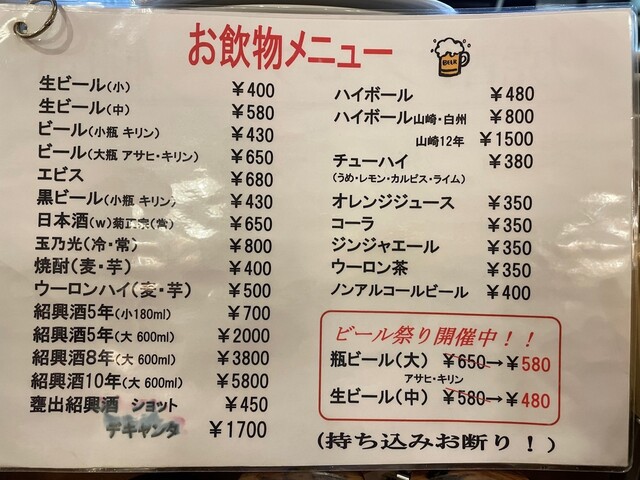 お飲物メニュー
BEER
生ビール(小) ¥400
生ビール(中) ¥580
ビール(小瓶 キリン) ¥430
ビール(大瓶 アサヒ・キリン) ¥650
エビス ¥680
黒ビール(小瓶 キリン) ¥430
日本酒(w)菊正宗(常) ¥650
玉乃光(冷・常) ¥800
焼酎(麦・芋) ¥400
ウーロンハイ(麦・芋) ¥500
紹興酒5年(小180ml) ¥700
紹興酒5年(大 600ml) ¥2000
紹興酒8年(大 600ml) ¥3800
紹興酒10年(大 600ml) ¥5800
甕出紹興酒 ショット ¥450
デキャンタ ¥1700
ハイボール ¥480
ハイボール山崎・白州 ¥800
山崎12年 ¥1500
チューハイ ¥380
(うめ・レモン・カルピス・ライム)
オレンジジュース ¥350
コーラ ¥350
ジンジャエール ¥350
ウーロン茶 ¥350
ノンアルコールビール ¥400
ビール祭り開催中!!
瓶ビール(大) ¥650→¥580
アサヒ・キリン
生ビール(中) ¥580→¥480
(持ち込みお断り!)